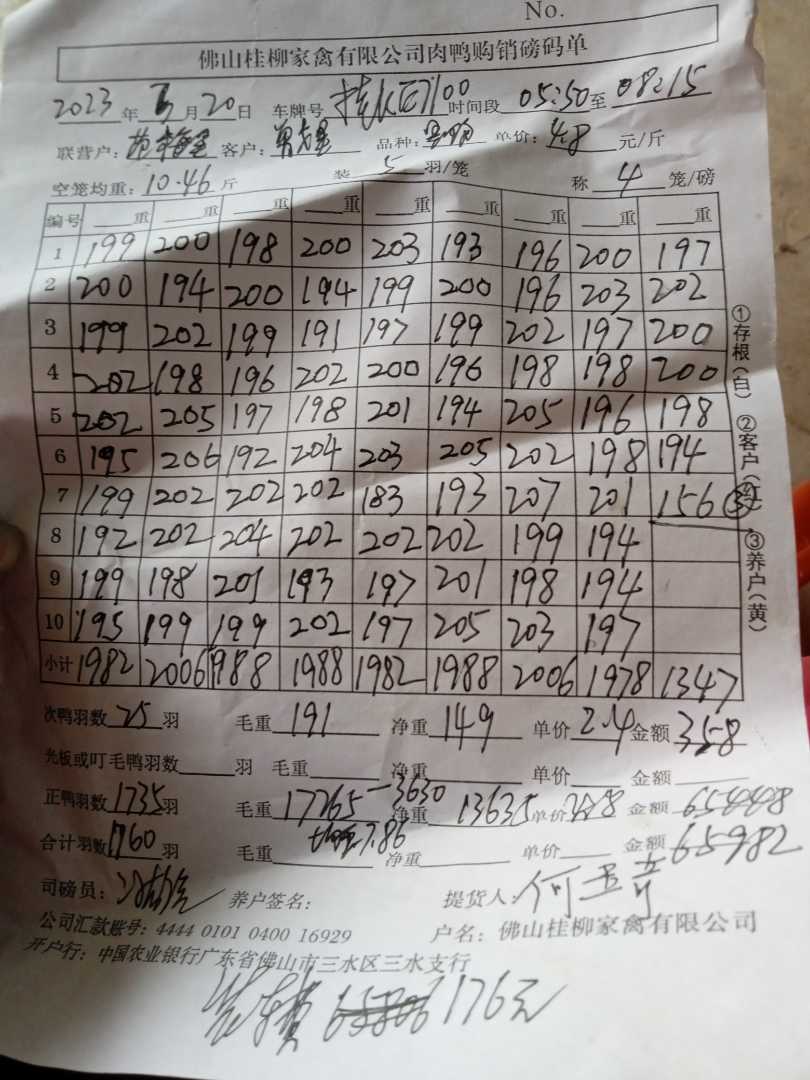 No.
佛山桂柳家禽有限公司肉鸭购销磅码单
2023 年 月 20 日 车牌号 7100 时间段 05:50 至 08:15
联营户: 客户: 品种: 单价: 4.8 元/斤
空笼均重: 10.46 斤 装 5 羽/笼 称 4 笼/磅
编号 重 重 重 重 重 重 重 重 重
1 199 200 198 200 203 193 196 200 197
2 200 194 200 194 199 200 196 203 202
3 199 202 199 191 197 199 202 197 200
4 202 198 196 202 200 196 198 198 200
5 202 205 197 198 201 194 205 196 198
6 195 206 192 204 203 205 202 198 194
7 199 202 202 202 183 193 207 201 156
8 192 202 204 202 202 202 199 194
9 199 198 201 193 197 201 198 194
10 195 199 199 202 197 205 203 197
小计 1982 2006 1988 1988 1982 1988 2006 1978 1347
次鸭羽数 25 羽 毛重 191 净重 149 单价 2.4 金额 358
光板或叮毛鸭羽数 羽 毛重 净重 单价 金额
正鸭羽数 1735 羽 毛重 17265 -3630 净重 13635 单价 金额 65448
合计羽数 1760 羽 毛重 7.86 净重 单价 金额 65982
司磅员: 养户签名: 提货人: 何
公司汇款账号: 4444 0101 0400 16929 户名: 佛山桂柳家禽有限公司
开户行: 中国农业银行广东省佛山市三水区三水支行
176元
①存根(白) ②客户(红) ③养户(黄)